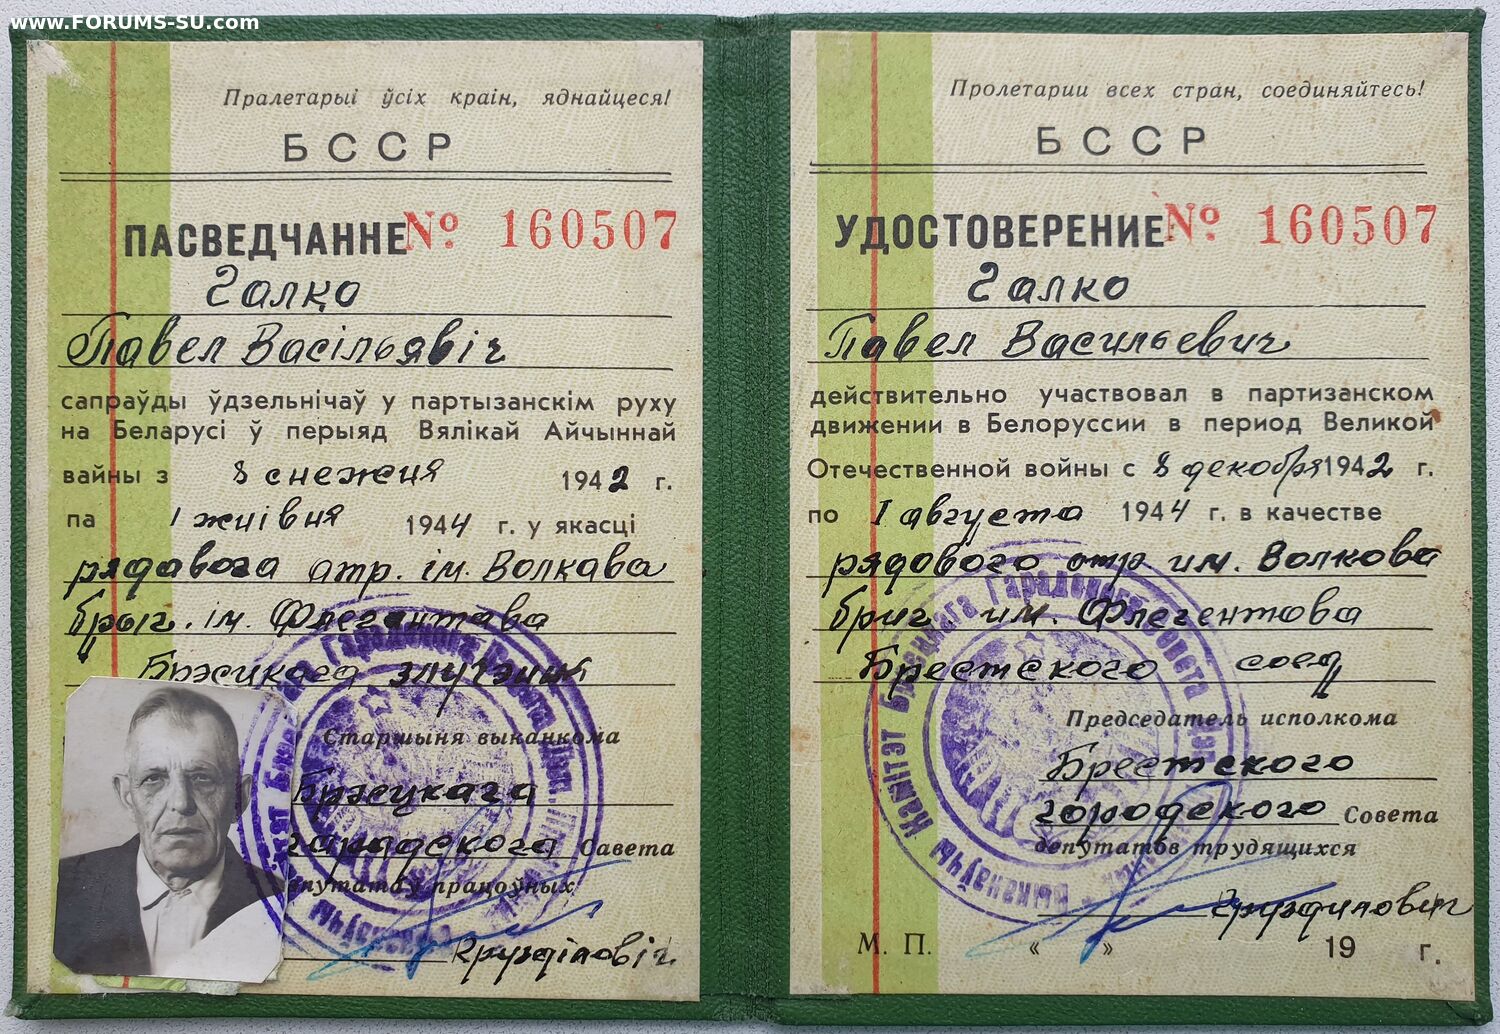 www.FORUMS-SU.com
Пралетарыі ўсіх краін, яднайцеся!
БССР
ПАСВЕДЧАННЕ № 160507
Галко
Павел Васільявіч
сапраўды ўдзельнічаў у партызанскім руху
на Беларусі ў перыяд Вялікай Айчыннай
вайны з 8 снежня 1942 г.
па 1 жніўня 1944 г. у якасці
рядавога атр. ім. Волкава
брыг. ім. Флегантава
Брэсцкага злучэння
Старшыня выканкома
Брэсцкага
гарадскога Савета
дэпутатаў працоўных
Пролетарии всех стран, соединяйтесь!
БССР
УДОСТОВЕРЕНИЕ № 160507
Галко
Павел Васильевич
действительно участвовал в партизанском
движении в Белоруссии в период Великой
Отечественной войны с 8 декобря 1942 г.
по 1 августа 1944 г. в качестве
рядового отр им. Волкова
бриг. им. Флегентова
Брестского соед
Председатель исполкома
Брестского
городского Совета
депутатов трудящихся
М. П. « » 19 г.